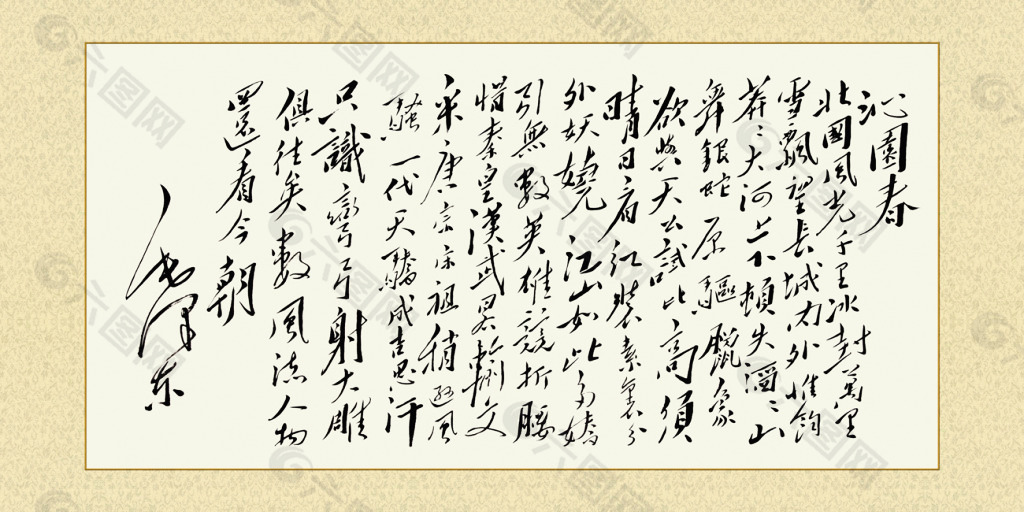 沁園春
北國風光千里冰封萬里
雪飄望長城内外惟餘
莽〻大河上下頓失滔〻山
舞銀蛇原驅臘象
欲與天公試比高須
晴日看红裝素裹分
外妖嬈江山如此多嬌
引無數英雄競折腰
惜秦皇漢武畧輸文
采唐宗宋祖稍遜風
騷一代天驕成吉思汗
只識彎弓射大雕
俱往矣數風流人物
還看今朝
毛澤东
六图网